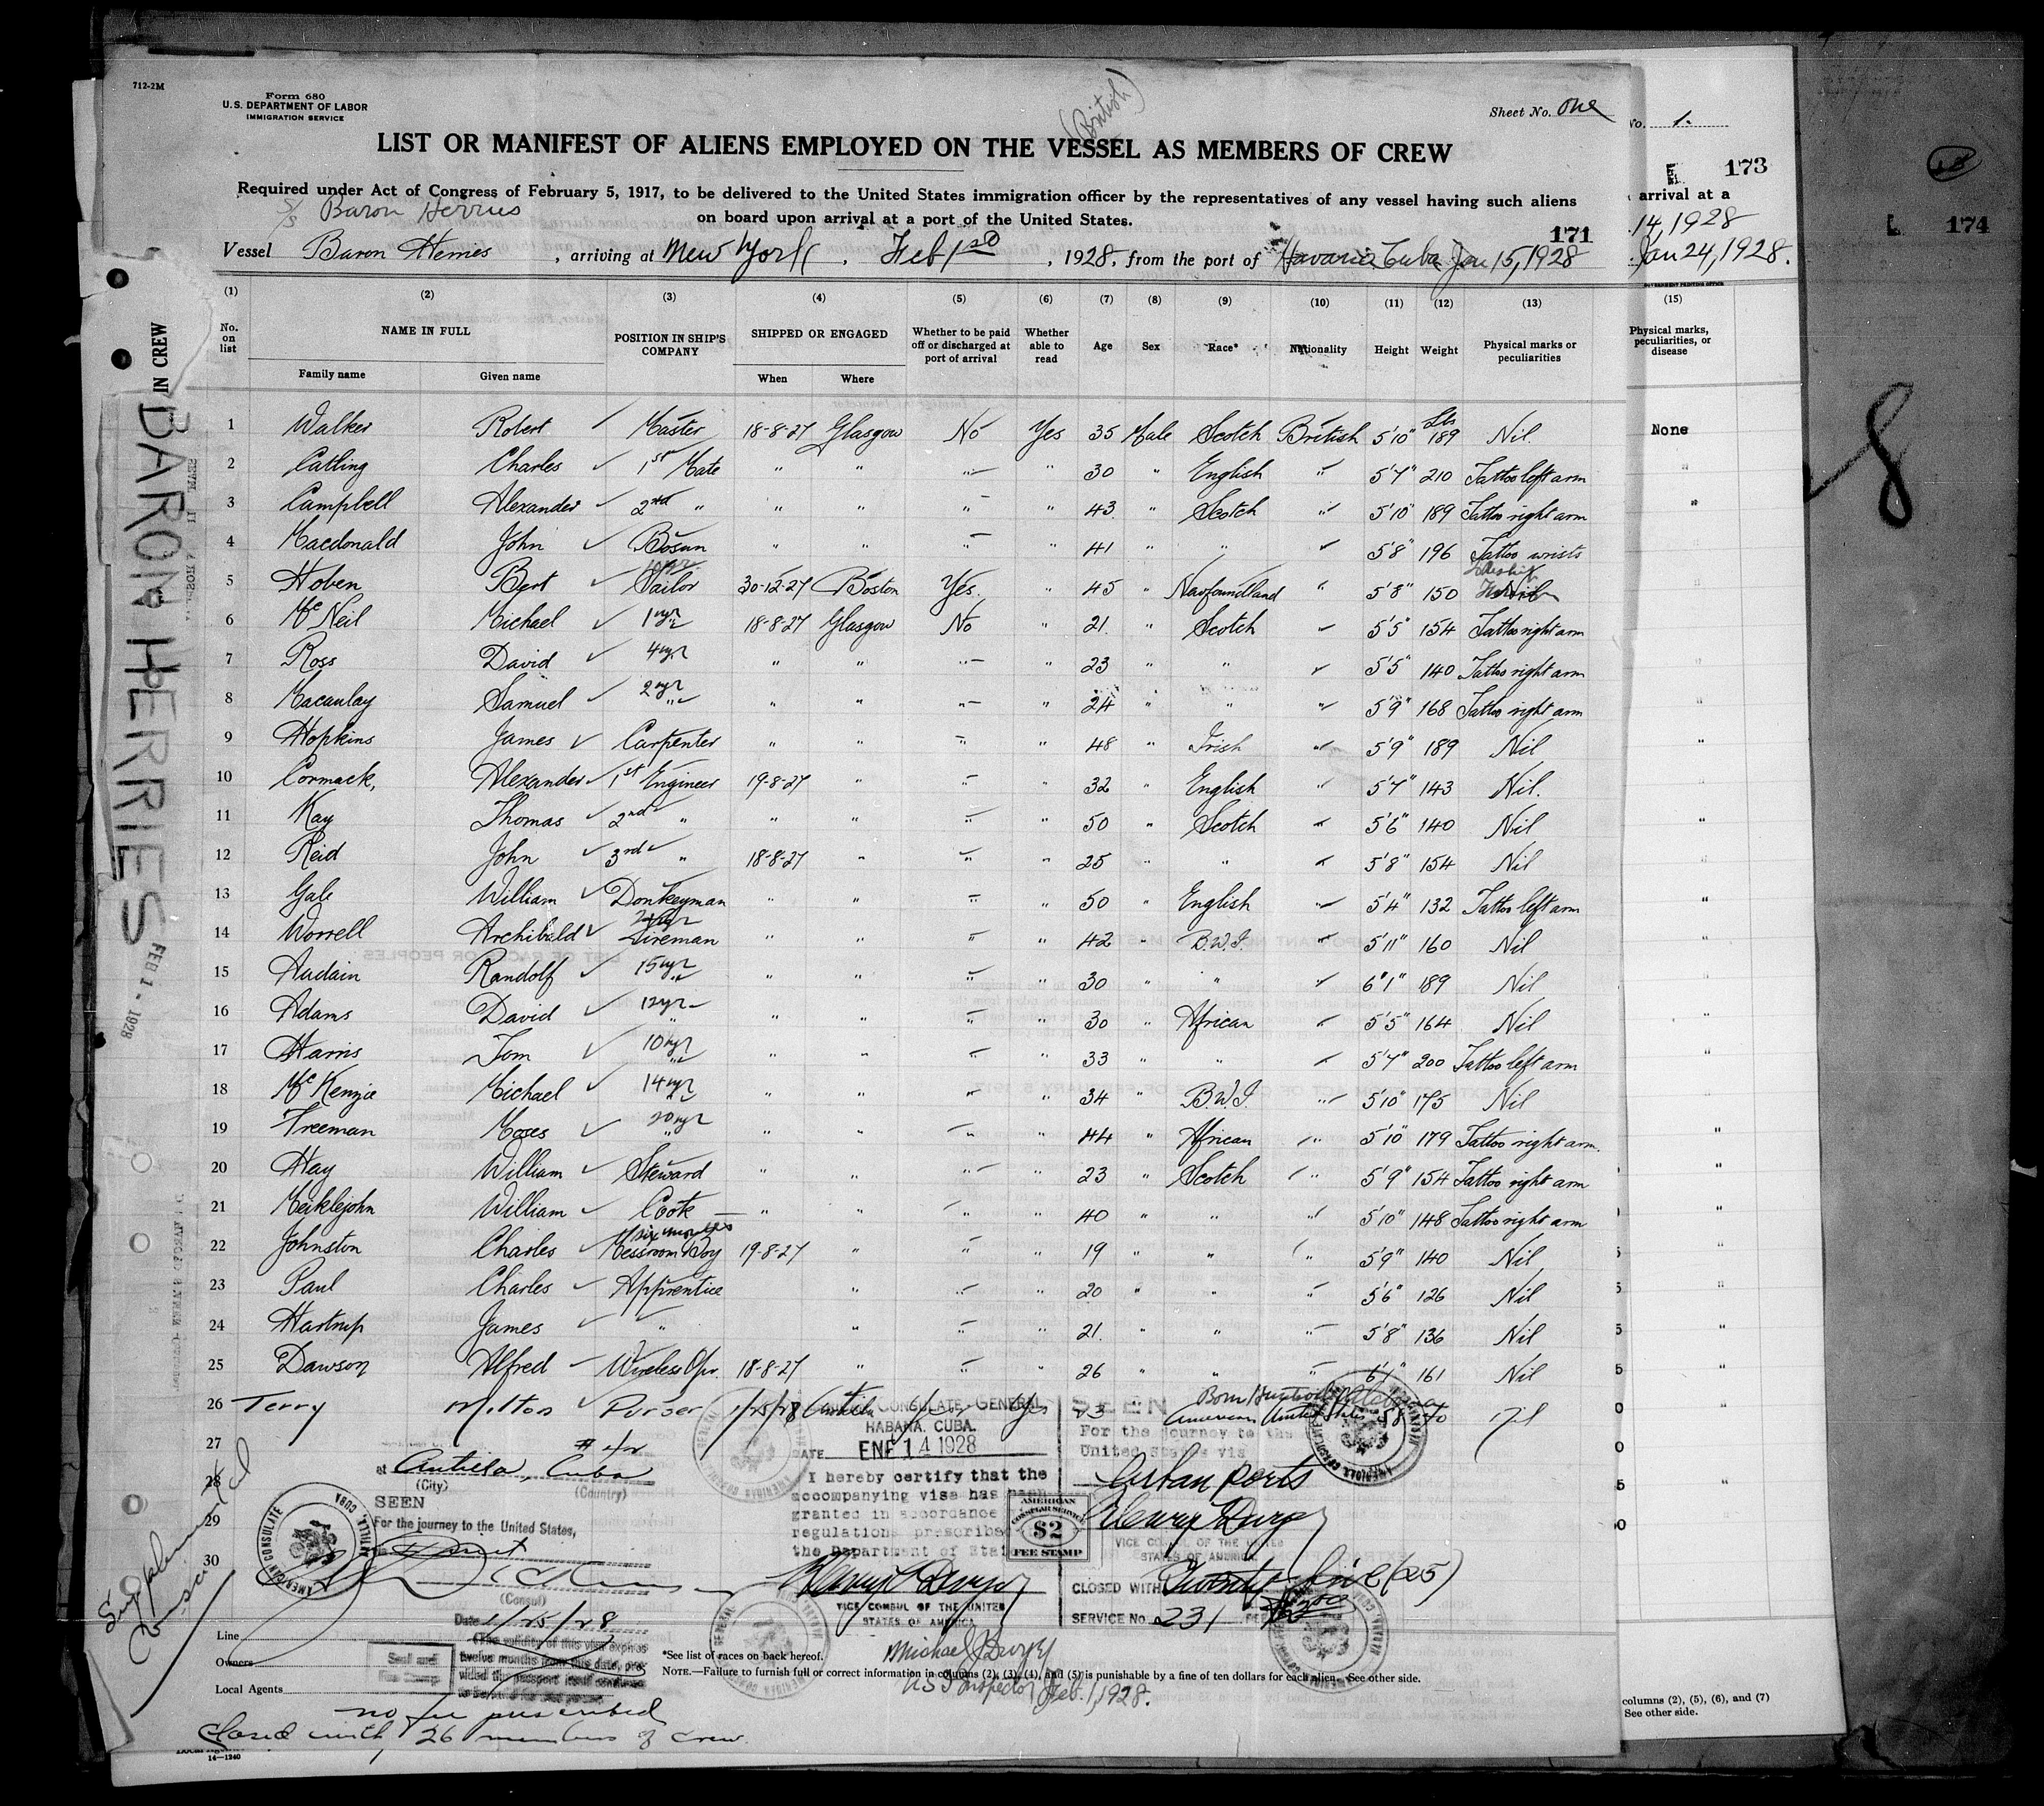 712-2M
Form 680
U.S. DEPARTMENT OF LABOR
IMMIGRATION SERVICE
(British)
Sheet No. One
No. 1.
LIST OR MANIFEST OF ALIENS EMPLOYED ON THE VESSEL AS MEMBERS OF CREW
173
174
Required under Act of Congress of February 5, 1917, to be delivered to the United States immigration officer by the representatives of any vessel having such aliens
arrival at a
S/S Baron Herries
on board upon arrival at a port of the United States.
14, 1928
171
Vessel Baron Herries, arriving at New York, Feb 1st, 1928, from the port of Havana Cuba Jan 15, 1928
Jan 24, 1928.
(1) (2) (3) (4) (5) (6) (7) (8) (9) (10) (11) (12) (13) (15)
No. on list NAME IN FULL POSITION IN SHIP'S COMPANY SHIPPED OR ENGAGED Whether to be paid off or discharged at port of arrival Whether able to read Age Sex Race* Nationality Height Weight Physical marks or peculiarities
Physical marks, peculiarities, or disease
Family name Given name When Where
1 Walker Robert Master 18-8-27 Glasgow No Yes 35 Male Scotch British 5'10" Lbs 189 Nil. None
2 Catling Charles 1st Mate " " " " 30 " English " 5'7" 210 Tattoo left arm
3 Campbell Alexander 2nd " " " " " 43 " Scotch " 5'10" 189 Tattoo right arm
4 Macdonald John Bosun " " " " 41 " " " 5'8" 196 Tattoo wrists
5 Hoben Bert Sailor 30-12-27 Boston Yes. " 45 " Newfoundland " 5'8" 150 Nil
6 McNeil Michael 1 yr " 18-8-27 Glasgow No " 21 " Scotch " 5'5" 154 Tattoo right arm
7 Ross David 4 yr " " " " " 23 " " " 5'5" 140 Tattoo right arm
8 Macaulay Samuel 2 yr " " " " " 24 " " " 5'9" 168 Tattoo right arm
9 Hopkins James Carpenter " " " " 48 " Irish " 5'9" 189 Nil
10 Cormack, Alexander 1st Engineer 19-8-27 " " " 32 " English " 5'7" 143 Nil.
11 Kay Thomas 2nd " " " " " 50 " Scotch " 5'6" 140 Nil
12 Reid John 3rd " 18-8-27 " " " 25 " " " 5'8" 154 Nil
13 Gale William Donkeyman " " " " 50 " English " 5'4" 132 Tattoo left arm
14 Worrell Archibald Fireman " " " " 42 " B.W.I. " 5'11" 160 Nil
15 Audain Randolf 15 yr " " " " " 30 " " " 6'1" 189 Nil
16 Adams David 12 yr " " " " " 30 " African " 5'5" 164 Nil
17 Harris Tom 10 yr " " " " " 33 " " " 5'7" 200 Tattoo left arm
18 McKenzie Michael 14 yr " " " " " 34 " B.W.I. " 5'10" 175 Nil
19 Freeman Moses 20 yr " " " " " 44 " African " 5'10" 179 Tattoo right arm.
20 Hay William Steward " " " " 23 " Scotch " 5'9" 154 Tattoo right arm
21 Meiklejohn William Cook " " " " 40 " " " 5'10" 148 Tattoo right arm
six months
22 Johnston Charles Messroom Boy 19-8-27 " " " 19 " " " 5'9" 140 Nil
23 Paul Charles Apprentice " " " 20 " " " 5'6" 126 Nil
24 Hartrup James " " " " 21 " " " 5'8" 136 Nil
25 Dawson Alfred Wireless Opr. 18-8-27 " " " 26 " " " 161 Nil
26 Terry Milton Purser 1/25/28 Antilla Yes Yes 23 Born American United States Nil
27
28
29
30
IN CREW
BARON HERRIES
FEB 1 - 1928
AMERICAN CONSULATE GENERAL
HABANA, CUBA.
DATE ENE 14 1928
I hereby certify that the
accompanying visa has been
granted in accordance
regulations prescribed
the Department of State
VICE CONSUL OF THE UNITED
STATES OF AMERICA
SEEN
For the journey to the
United States via
Cuban ports
AMERICAN
CONSULAR SERVICE
$2
FEE STAMP
VICE CONSUL OF THE UNITED
STATES OF AMERICA
CLOSED WITH Twenty five (25)
SERVICE No. 231
at Antilla, Cuba
(City) (Country)
AMERICAN CONSULATE ANTILLA, CUBA
SEEN
For the journey to the United States,
(Consul)
Date 1/25/28
(The validity of this visa expires
twelve months from this date, pro-
vided the passport itself continues
Seal and
Fee Stamp
Supplemental
Line
Owners
Local Agents
*See list of races on back hereof.
NOTE.—Failure to furnish full or correct information in columns (2), (3), (4), and (5) is punishable by a fine of ten dollars for each alien. See other side.
U S Inspector Feb. 1, 1928.
no fee prescribed
Closed with 26 members of crew.
14—1240
columns (2), (5), (6), and (7)
See other side.